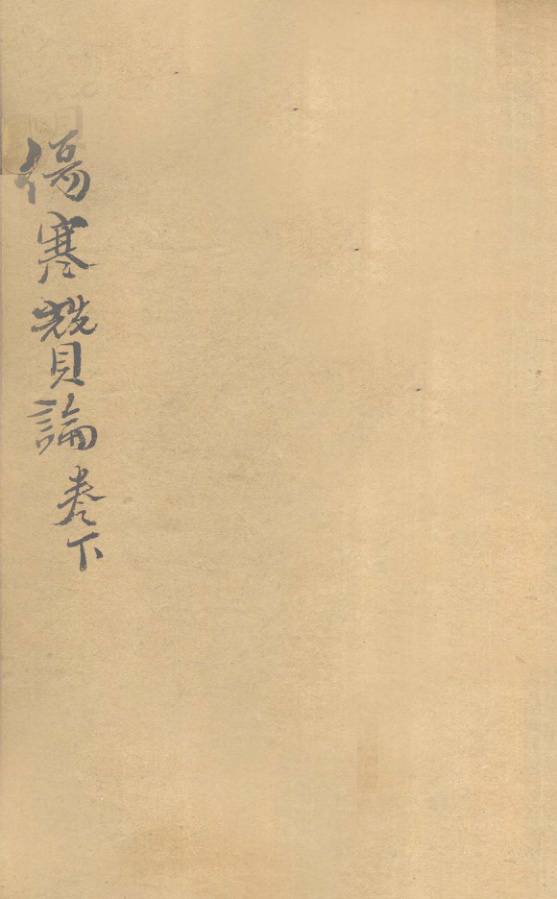 傷寒贊論卷下